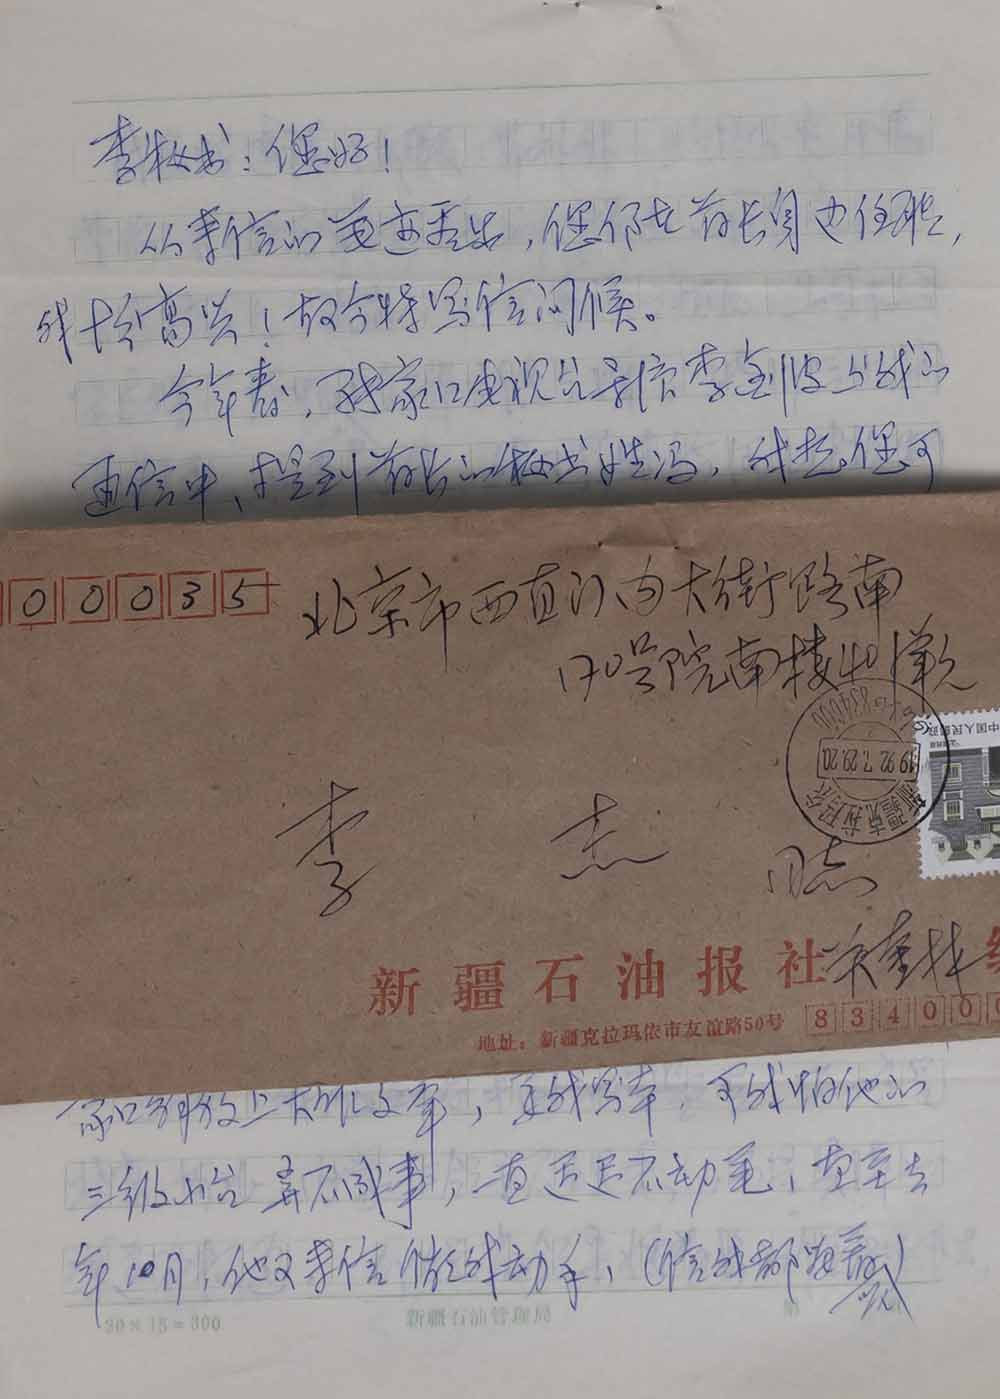 李秘书：您好！
从来信的笔迹看出，您仍在首长身边任职，
我十分高兴！故今特写信问候。
今年春，张家口电视台导演李剑波与我的
通信中，提到首长的秘书姓冯，我想您可
00035
北京市西直门内大街路南
170号院南楼401单元
新疆克拉玛依
1992.7.29.20
834000
中国人民邮政
李杰同志
新疆石油报社
地址：新疆克拉玛依市友谊路50号
834000
家口 上 文章，要我写本，可我怕他的
三级小台弄不成事，一直迟迟不动笔，直至去
年10月，他又来信催我动手，（信我都
20×15=300
新疆石油管理局
第